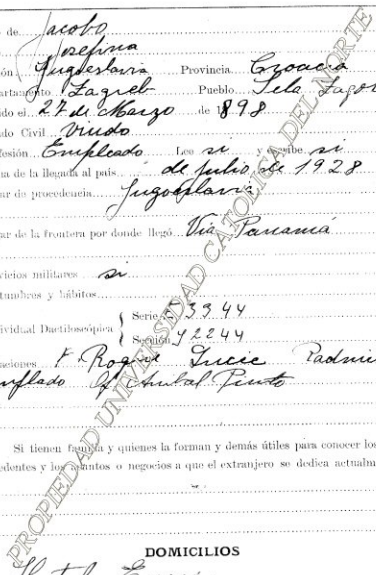 de Jacobo
Josefina
ón Jugoeslavia Provincia Croacia
partamento Zagreb Pueblo Sela Zagor
ido el 27 de Marzo de 1898
ado Civil Viudo
fesión Empleado Lee si y escribe si
a de la llegada al país de Julio de 1928
ar de procedencia Jugoeslavia
ar de la frontera por donde llegó Via Panamá
vicios militares si
tumbres y hábitos
ividual Dactiloscópica
Serie 3944
Sección 42244
aciones F. Lucic Radnic
Of. Anibal Pinto
Si tienen familia y quienes la forman y demás útiles para conocer los
edentes y los asuntos o negocios a que el extranjero se dedica actualm
DOMICILIOS
Hotel
PROPIEDAD UNIVERSIDAD CATOLICA DEL NORTE